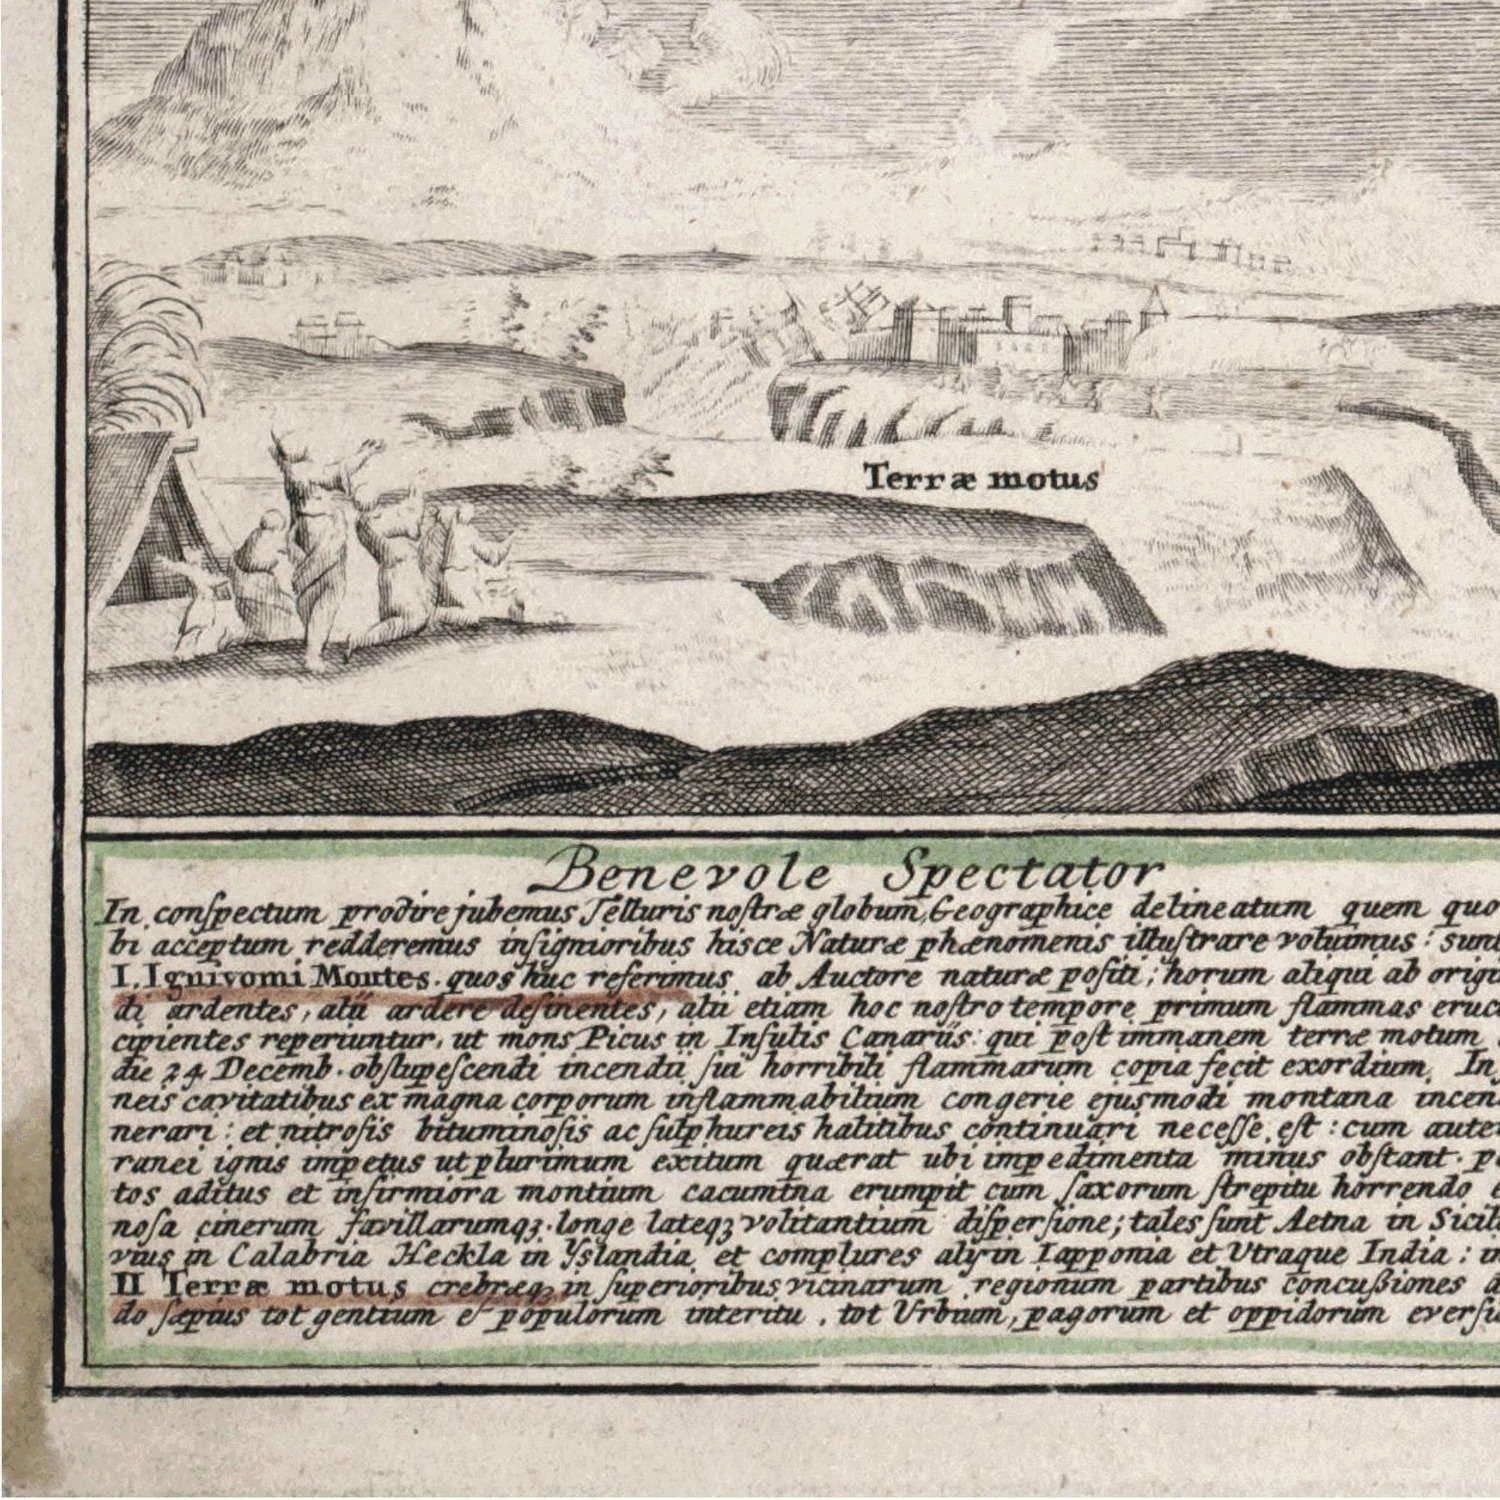 Terræ motus
Benevole Spectator
In conſpectum prodire jubemus Telluris noſtræ globum, Geographice delineatum quem quo
bi acceptum redderemus inſignioribus hisce Naturæ phænomenis illuſtrare voluimus: sunt
I. Ignivomi Montes. quos huc referimus ab Auctore naturæ poſiti; horum aliqui ab origi
di ardentes, alii ardere deſinentes, alii etiam hoc noſtro tempore primum flammas eruc
cipientes reperiuntur, ut mons Picus in Inſulis Canariis: qui poſt immanem terræ motum
die 24 Decemb. obſtupeſcendi incendii ſui horribili flammarum copia fecit exordium. In
neis cavitatibus ex magna corporum inflammabilium congerie ejusmodi montana incen
nerari: et nitroſis bituminoſis ac ſulphureis halitibus continuari neceſſe eſt: cum aute
ranei ignis impetus ut plurimum exitum quærat ubi impedimenta minus obſtant. p
tos aditus et infirmiora montium cacumina erumpit cum ſaxorum ſtrepitu horrendo e
noſa cinerum favillarumqꝫ. longe lateqꝫ volitantium diſperſione; tales ſunt Aetna in Sicil
vius in Calabria Heckla in Yslandia, et complures alÿ in Iapponia et Utraque India: in
II Terræ motus crebræqꝫ in ſuperioribus vicinarum regionum partibus concuſſiones
do ſæpius tot gentium & populorum interitu, tot Urbium, pagorum et oppidorum everſi